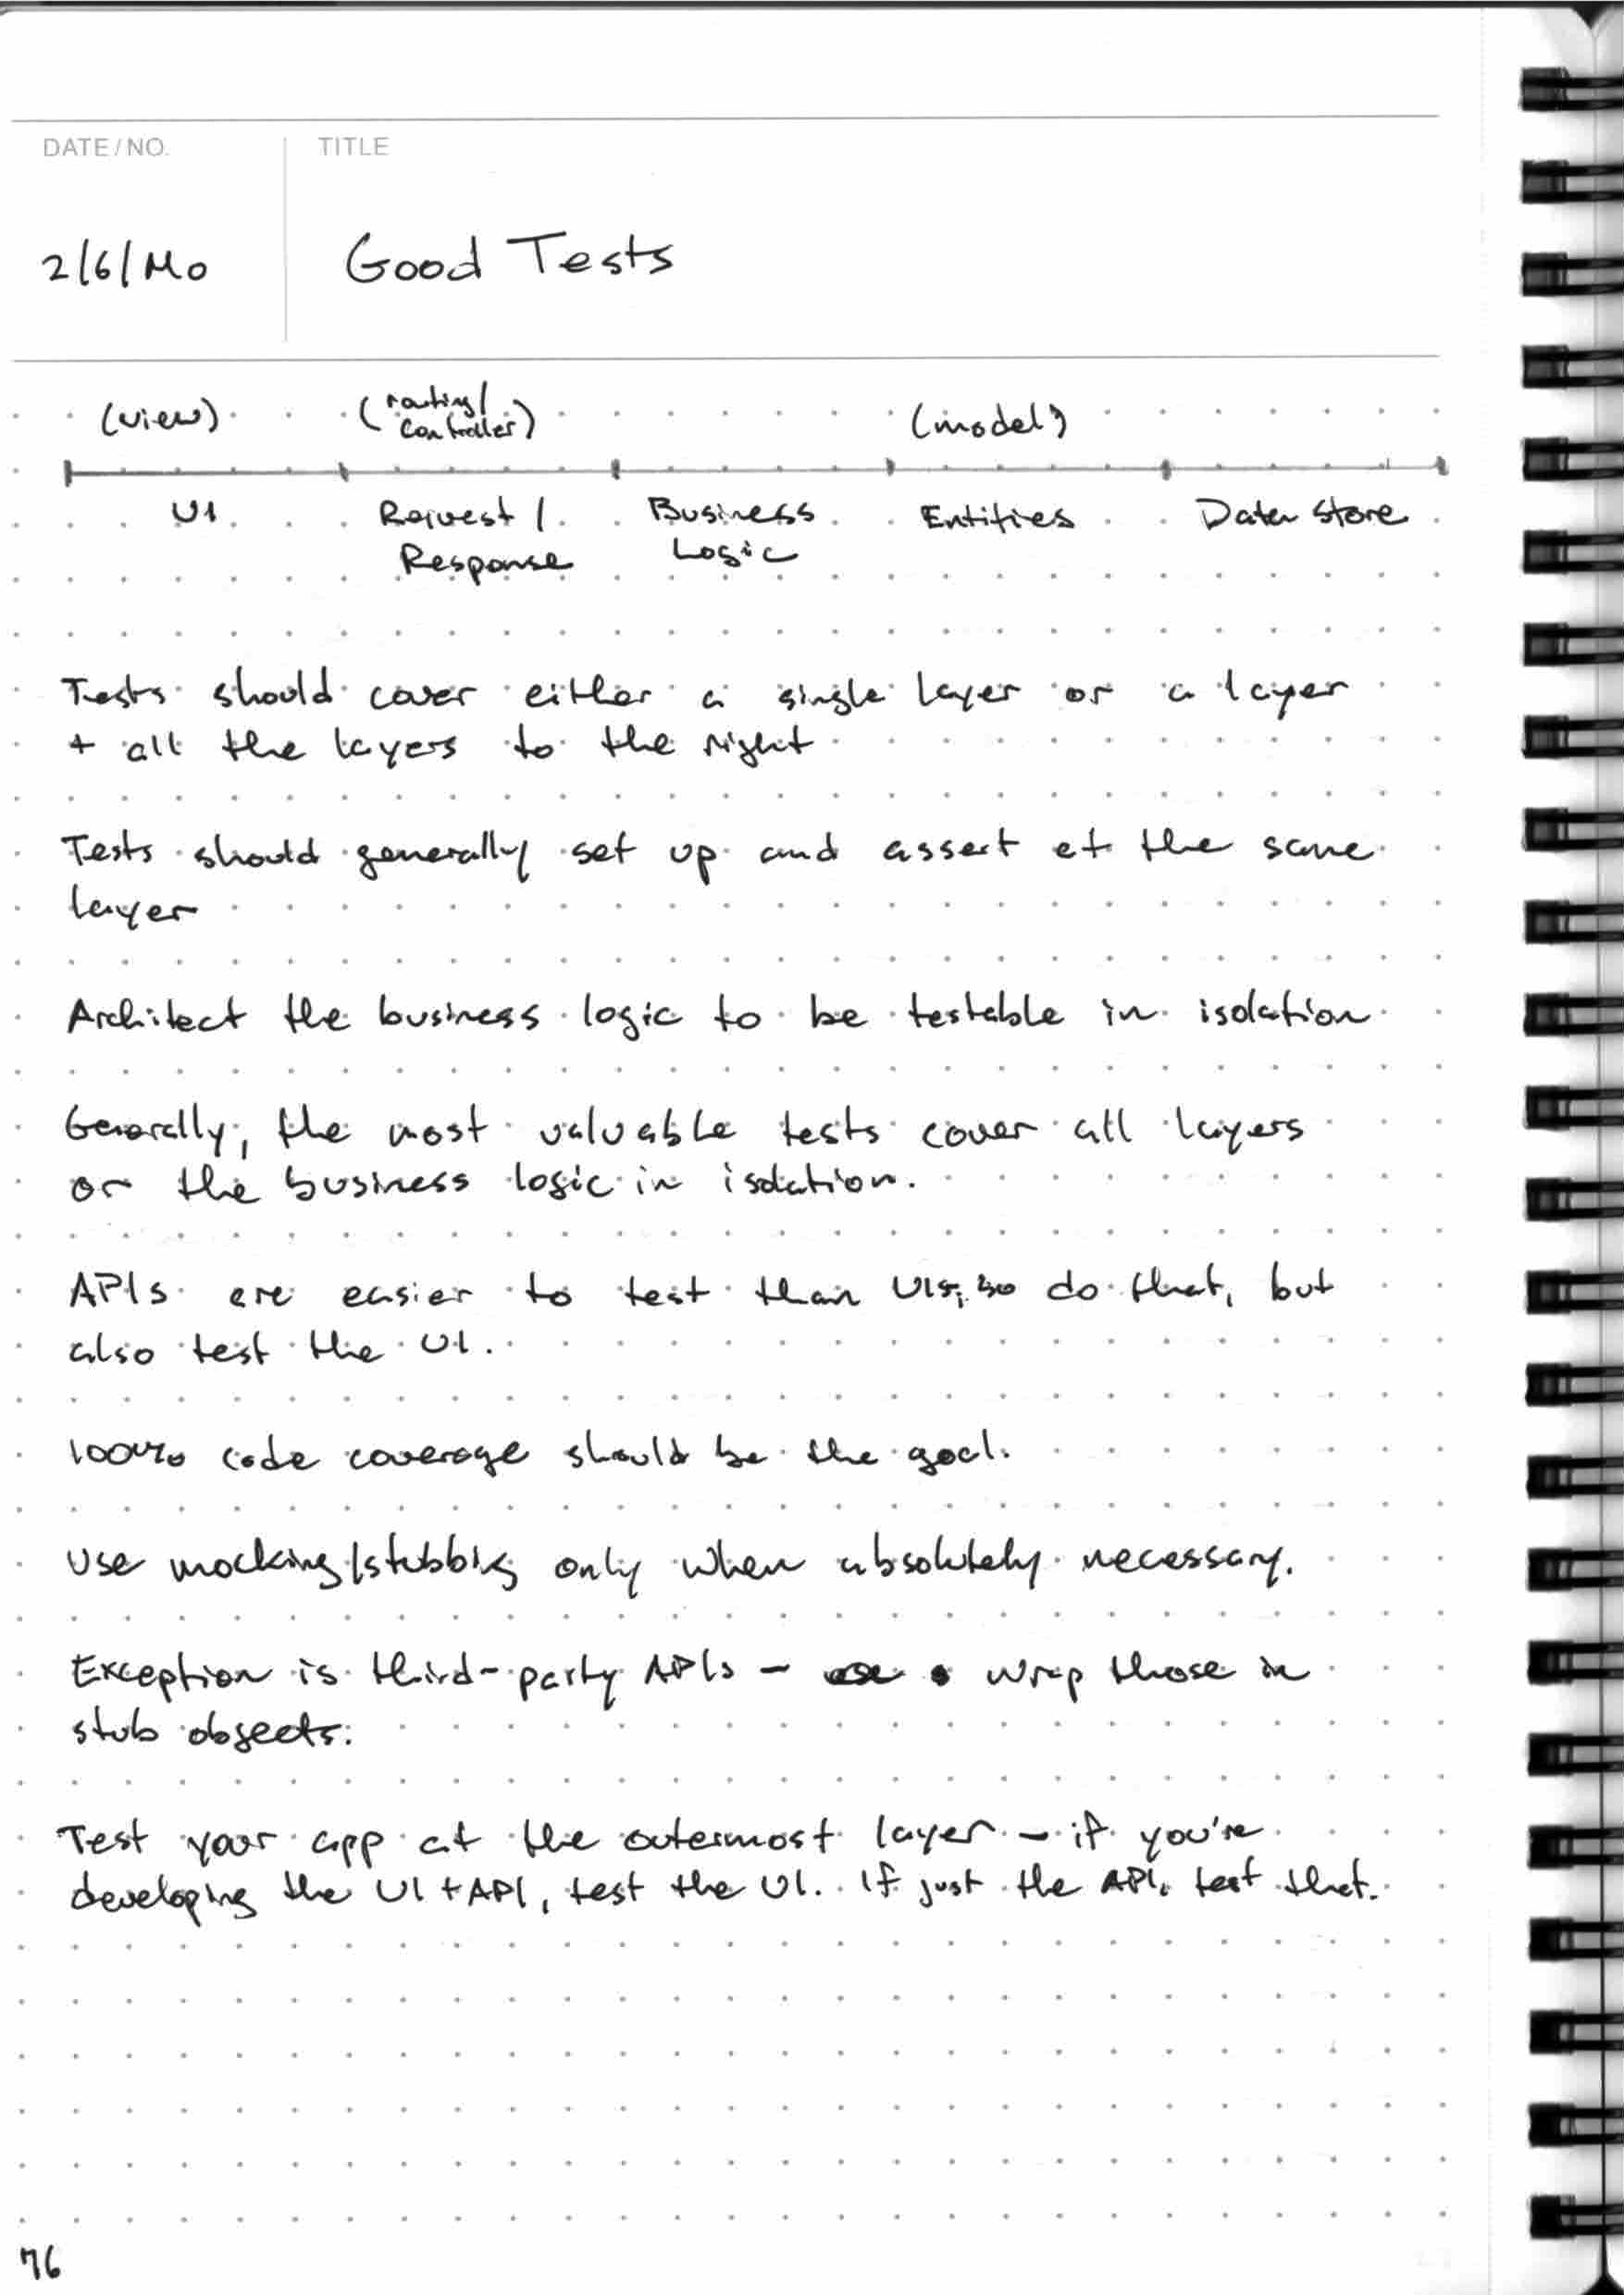 DATE/NO.
TITLE
2/6/Mo
Good Tests
(view)
(routing/
controller)
(model)
UI
Request /
Response
Business
Logic
Entities
Data Store
Tests should cover either a single layer or a layer
+ all the layers to the right
Tests should generally set up and assert at the same
layer
Architect the business logic to be testable in isolation
Generally, the most valuable tests cover all layers
or the business logic in isolation.
APIs are easier to test than UIs, so do that, but
also test the UI.
100% code coverage should be the goal.
Use mocking/stubbing only when absolutely necessary.
Exception is third-party APIs - wrap those in
stub objects.
Test your app at the outermost layer - if you're
developing the UI + API, test the UI. If just the API, test that.
76